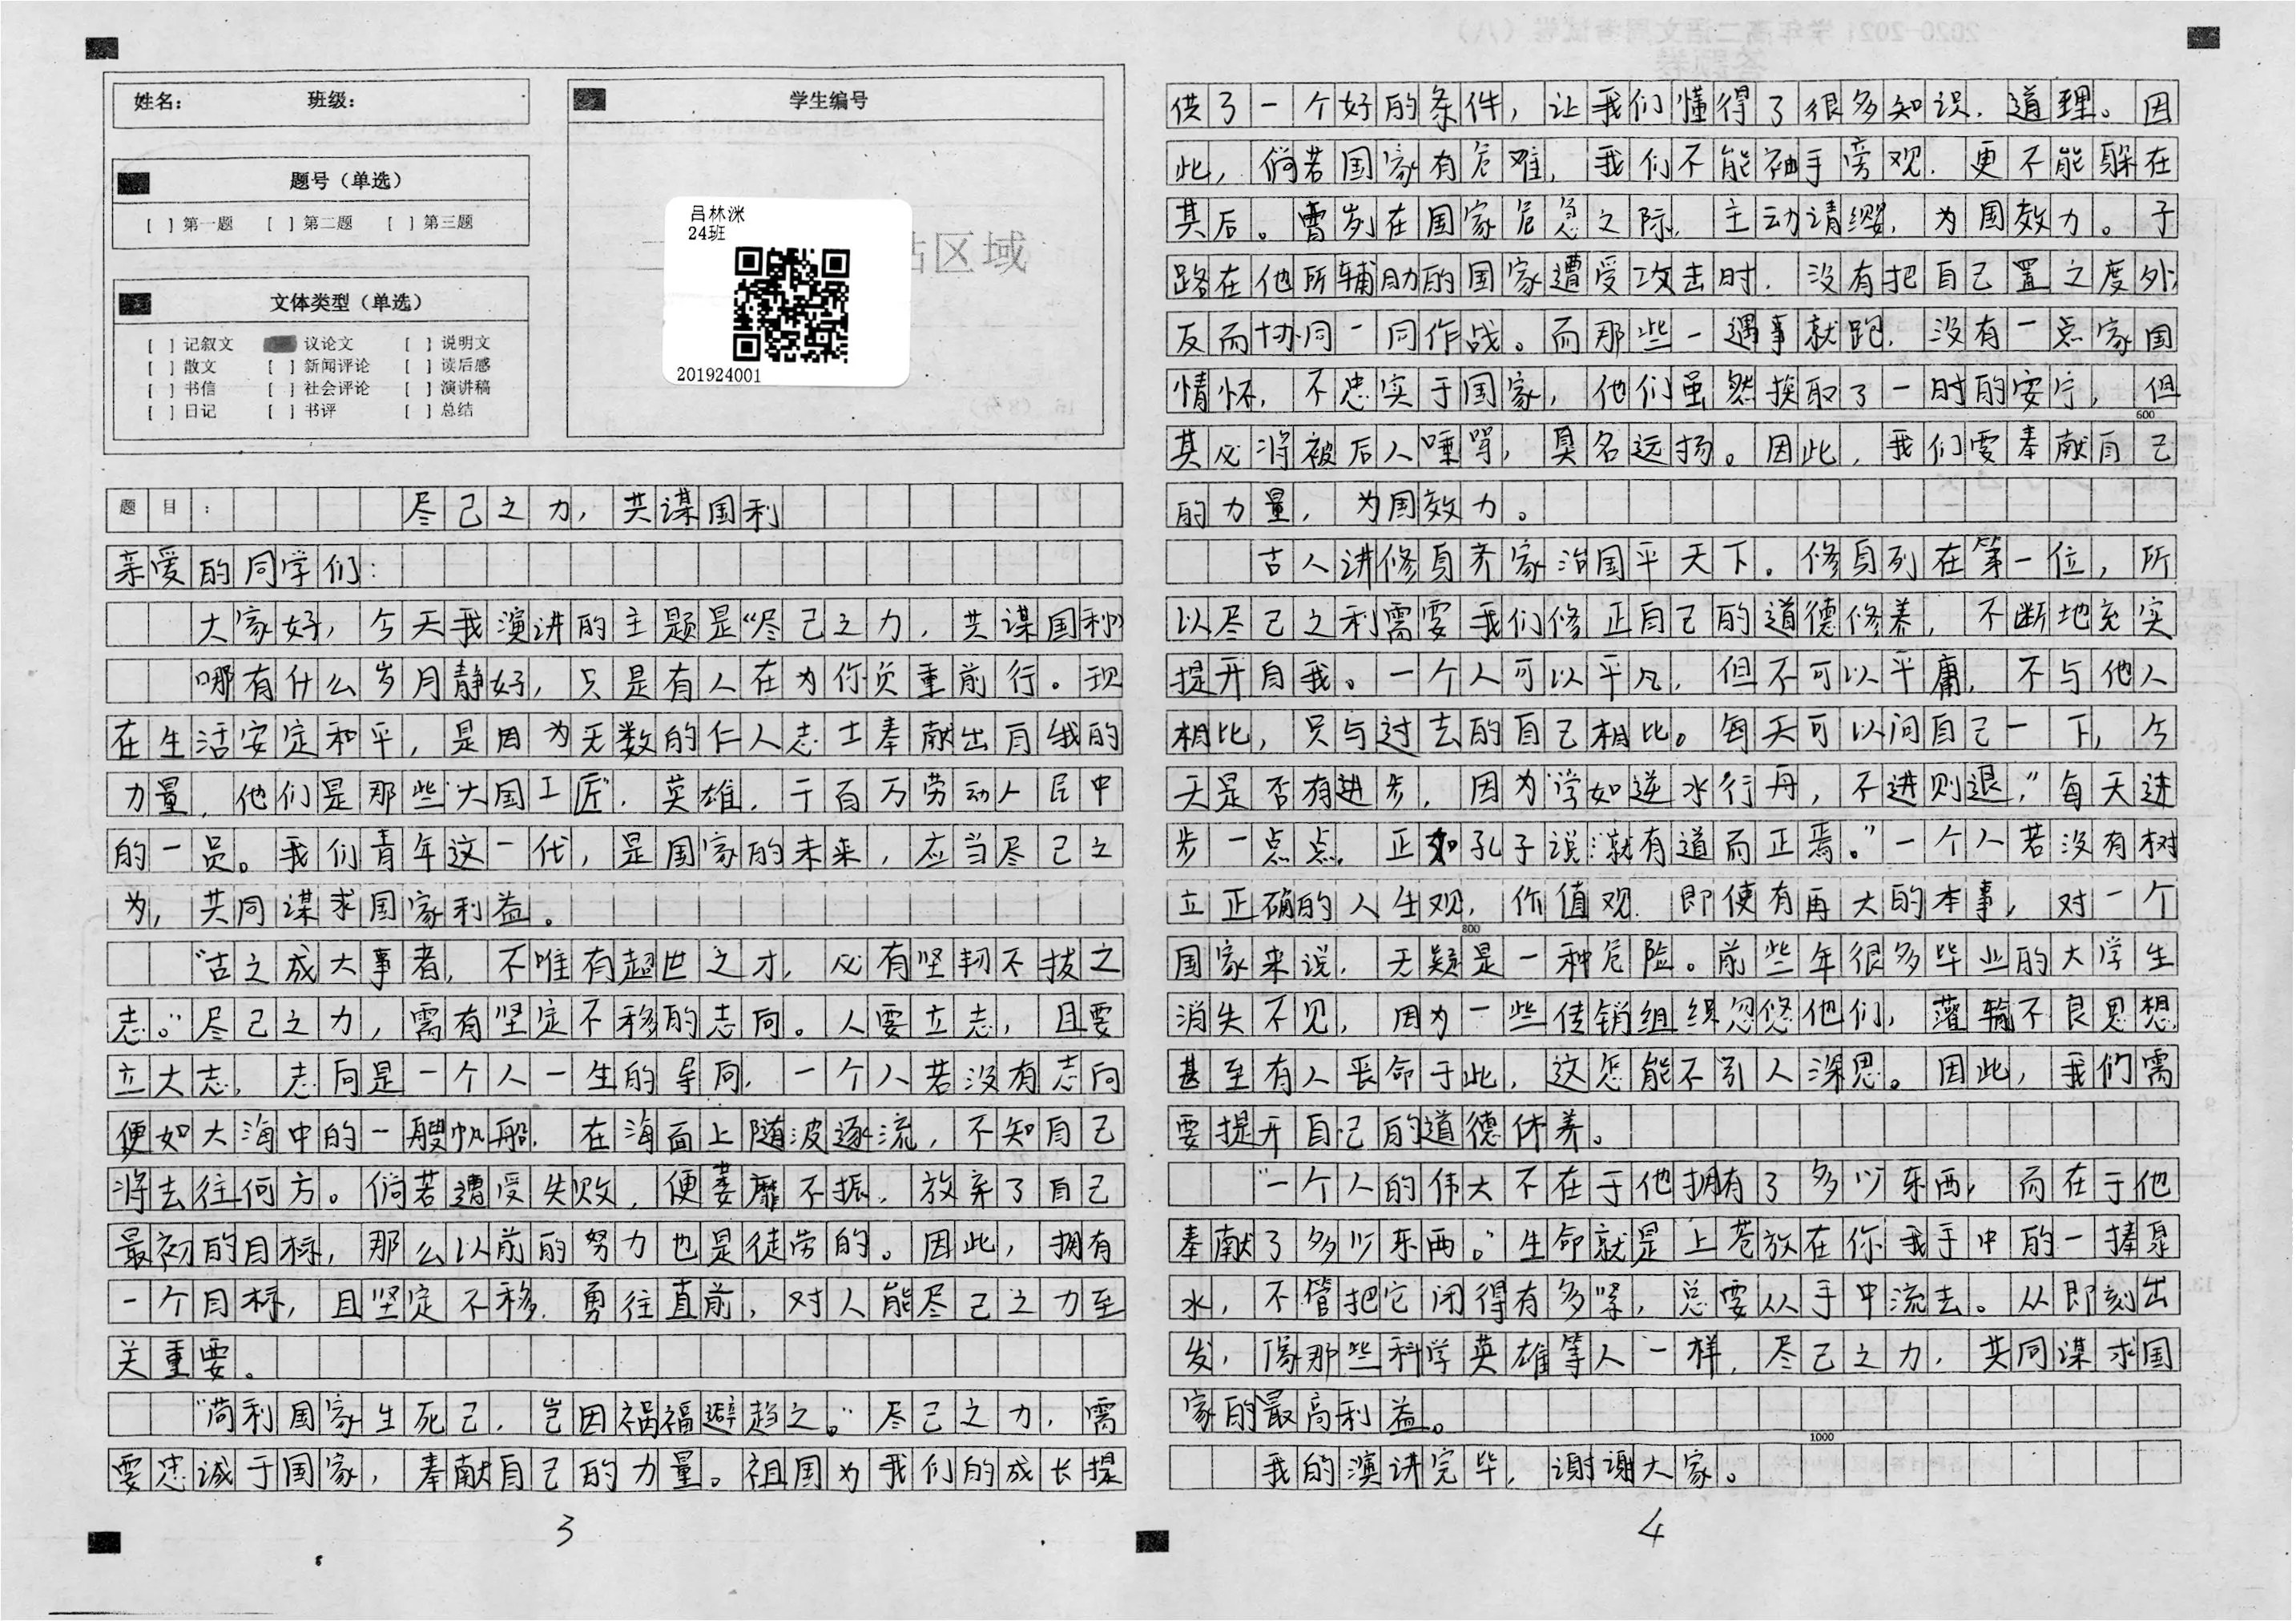 姓名: 班级:
题号（单选）
[ ] 第一题 [ ] 第二题 [ ] 第三题
文体类型（单选）
[ ] 记叙文 议论文 [ ] 说明文
[ ] 散文 [ ] 新闻评论 [ ] 读后感
[ ] 书信 [ ] 社会评论 [ ] 演讲稿
[ ] 日记 [ ] 书评 [ ] 总结
学生编号
吕林洣
24班
贴区域
201924001
题目: 尽己之力，共谋国利
亲爱的同学们：
大家好，今天我演讲的主题是“尽己之力，共谋国利”
哪有什么岁月静好，只是有人在为你负重前行。现
在生活安定和平，是因为无数的仁人志士奉献出自我的
力量，他们是那些“大国工匠”，英雄，千百万劳动人民中
的一员。我们青年这一代，是国家的未来，应当尽己之
为，共同谋求国家利益。
“古之成大事者，不唯有超世之才，必有坚韧不拔之
志。”尽己之力，需有坚定不移的志向。人要立志，且要
立大志，志向是一个人一生的导向，一个人若没有志向
便如大海中的一艘帆船，在海面上随波逐流，不知自己
将去往何方。倘若遭受失败，便萎靡不振，放弃了自己
最初的目标，那么以前的努力也是徒劳的。因此，拥有
一个目标，且坚定不移，勇往直前，对人能尽己之力至
关重要。
“苟利国家生死己，岂因祸福避趋之。”尽己之力，需
要忠诚于国家，奉献自己的力量。祖国为我们的成长提
3
供了一个好的条件，让我们懂得了很多知识，道理。因
此，倘若国家有危难，我们不能袖手旁观，更不能躲在
其后。曹刿在国家危急之际，主动请缨，为国效力。子
路在他所辅助的国家遭受攻击时，没有把自己置之度外，
反而协同一同作战。而那些一遇事就跑，没有一点家国
情怀，不忠实于国家，他们虽然换取了一时的安宁，但
600
其必将被后人唾骂，臭名远扬。因此，我们要奉献自己
的力量，为国效力。
古人讲修身齐家治国平天下。修身列在第一位，所
以尽己之利需要我们修正自己的道德修养，不断地充实
提升自我。一个人可以平凡，但不可以平庸，不与他人
相比，只与过去的自己相比。每天可以问自己一下，今
天是否有进步，因为“学如逆水行舟，不进则退，”每天进
步一点点，正如孔子说：“就有道而正焉。”一个人若没有树
立正确的人生观，价值观，即使有再大的本事，对一个
800
国家来说，无疑是一种危险。前些年很多毕业的大学生
消失不见，因为一些传销组织忽悠他们，灌输不良思想
甚至有人丧命于此，这怎能不引人深思。因此，我们需
要提升自己的道德休养。
“一个人的伟大不在于他拥有了多少东西，而在于他
奉献了多少东西。”生命就是上苍放在你我手中的一捧泉
水，不管把它闭得有多紧，总要从手中流去。从即刻出
发，像那些科学英雄等人一样，尽己之力，共同谋求国
家的最高利益。
1000
我的演讲完毕，谢谢大家。
4